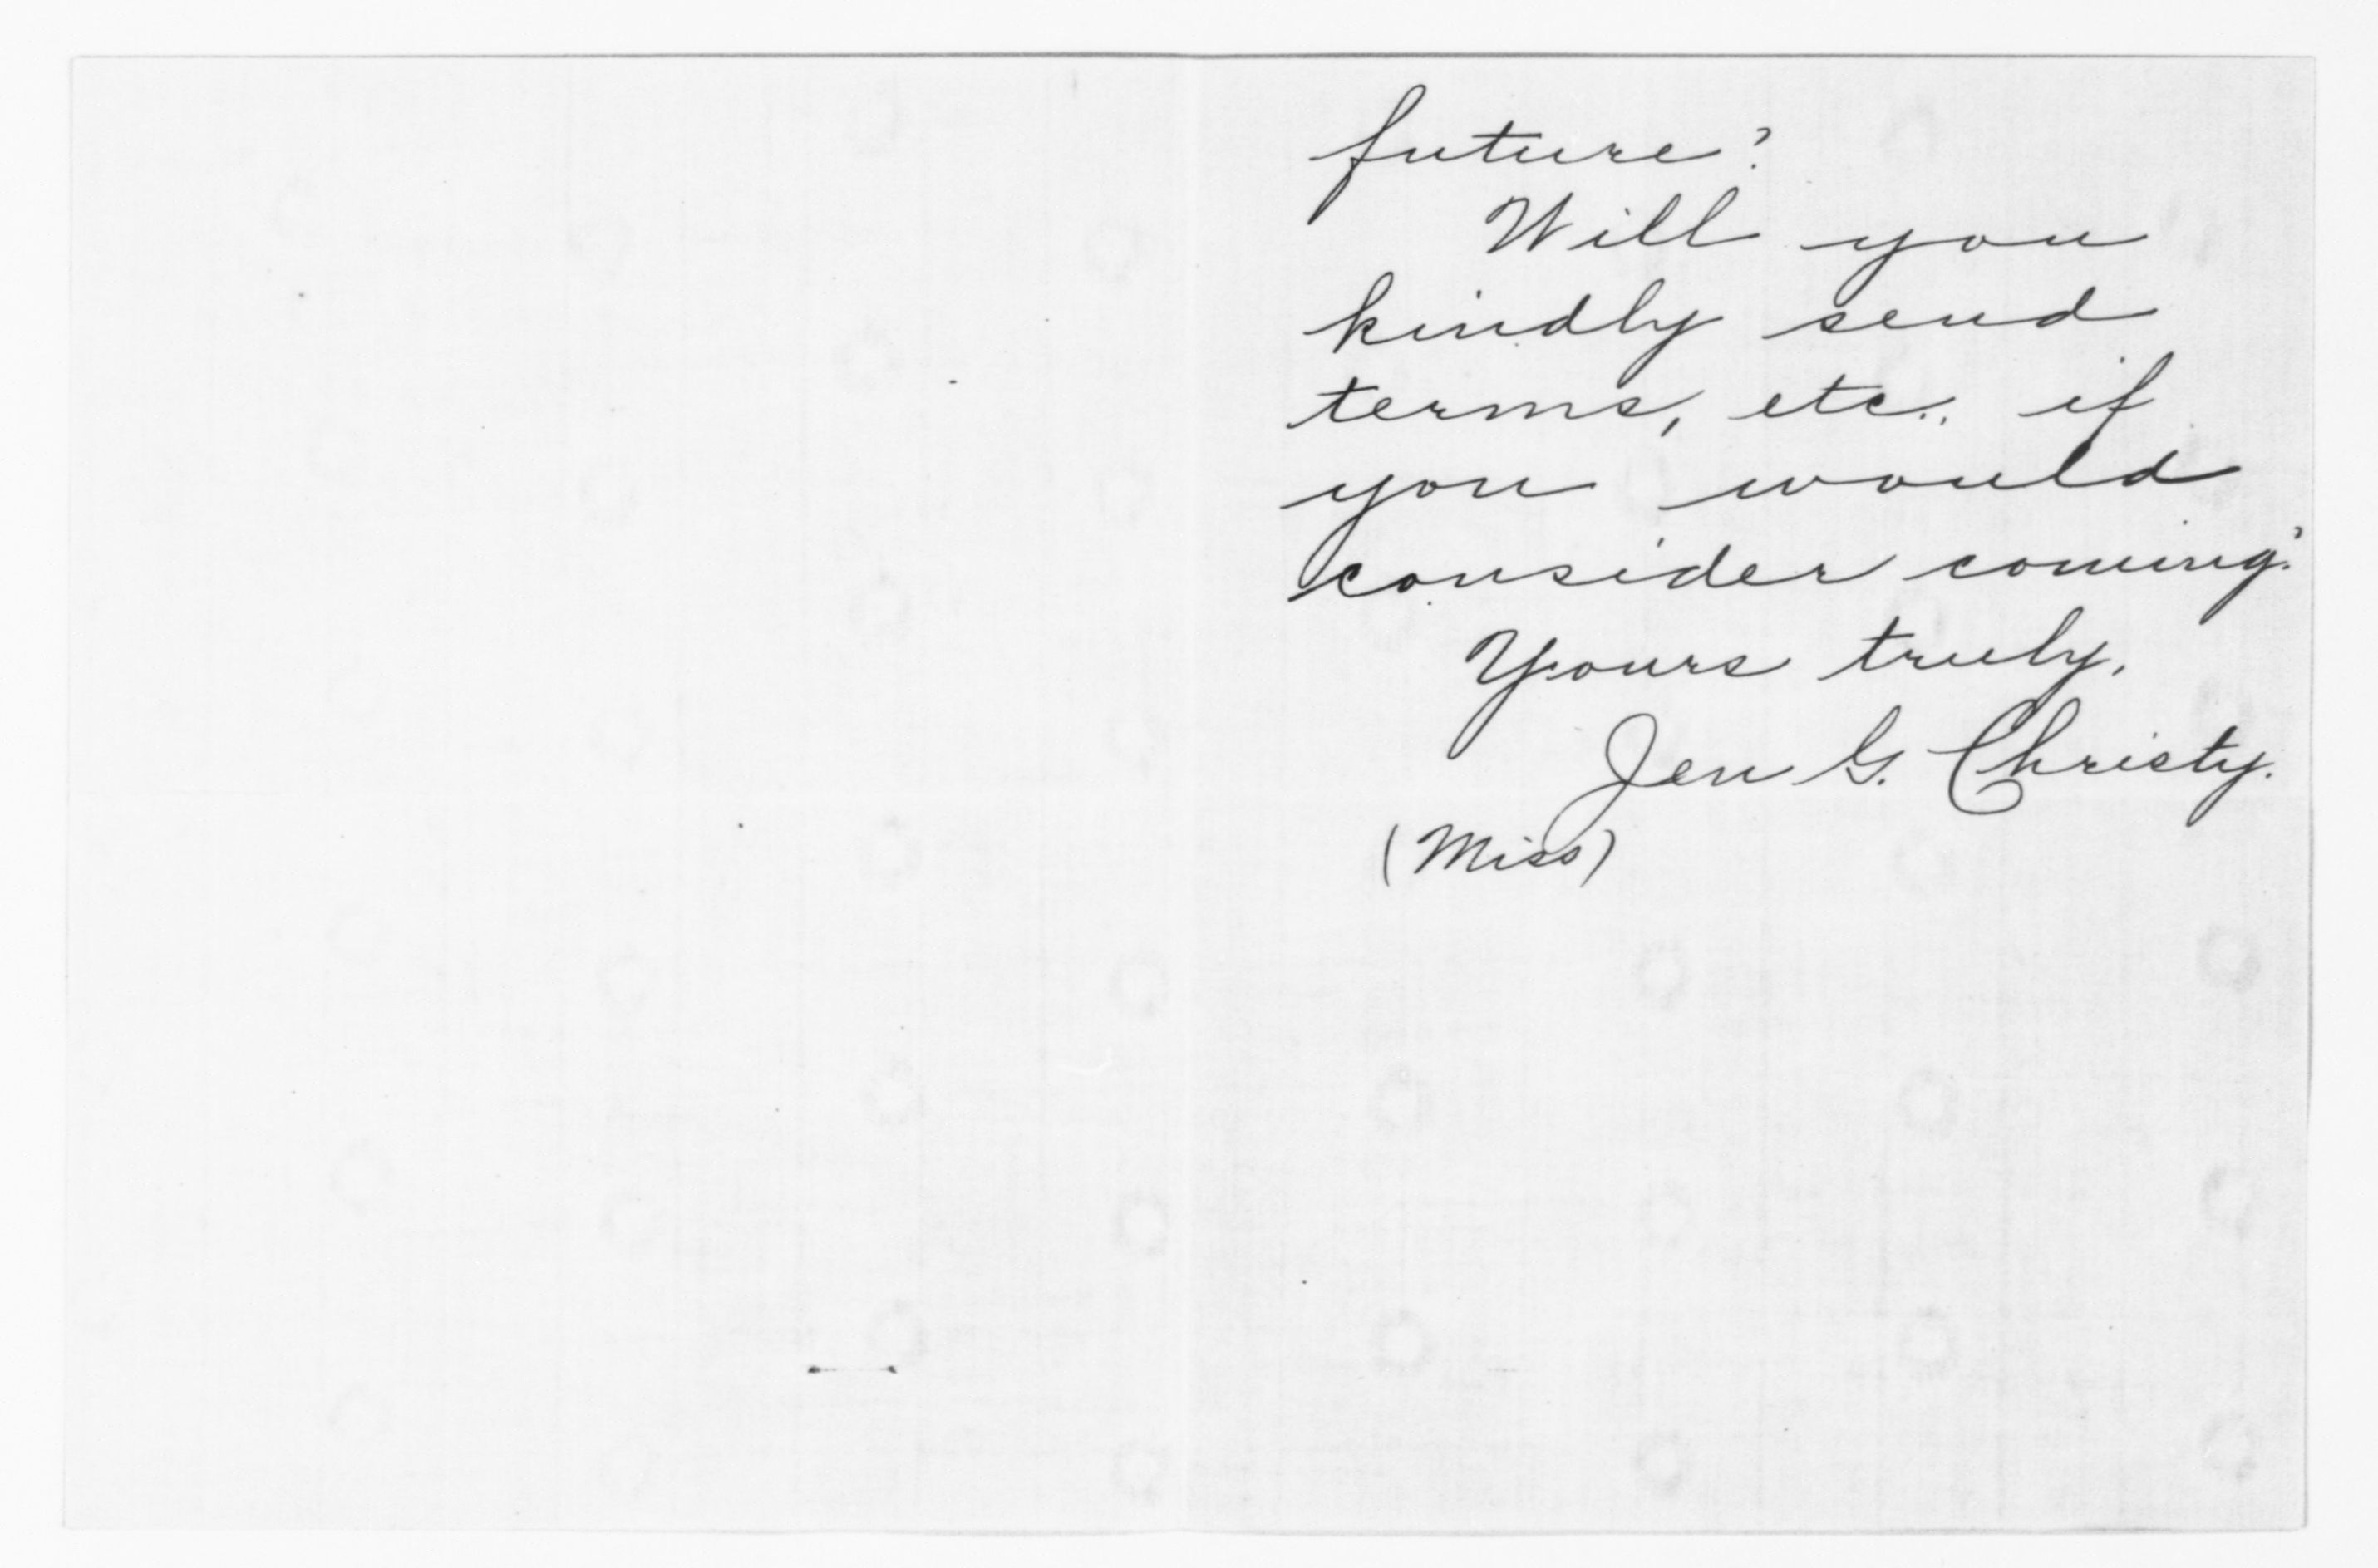 future?
Will you
kindly send
terms, etc., if
you would
consider coming?
Yours truly,
Jen G. Christy.
(Miss)